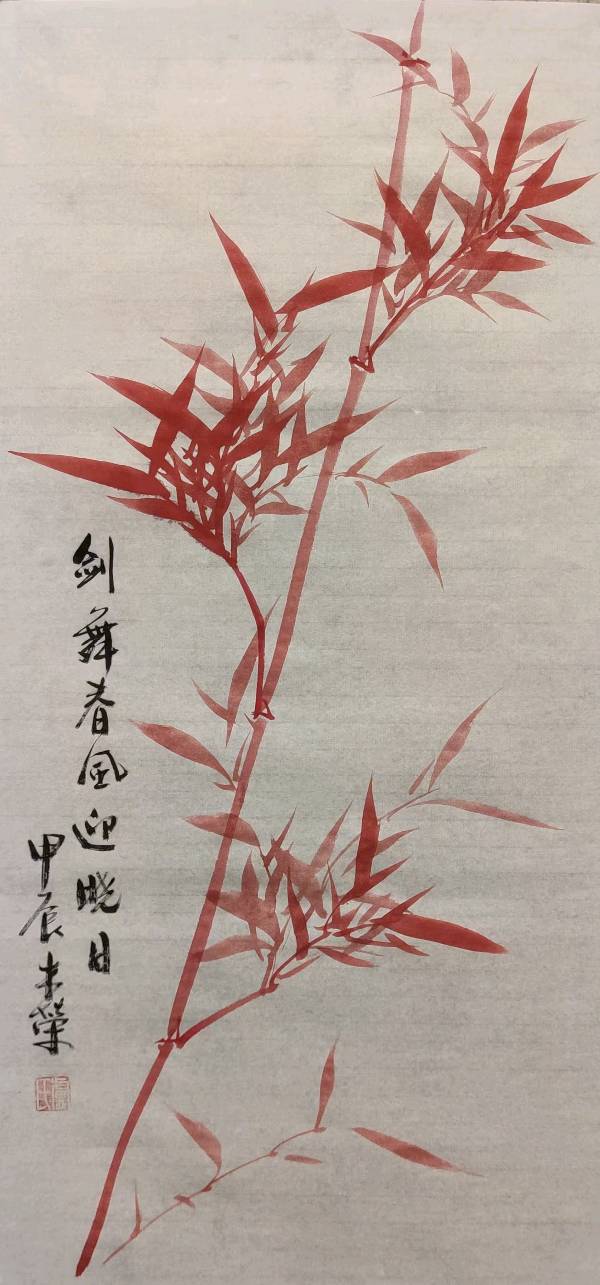 剑舞春风迎晓日
甲辰 未荣